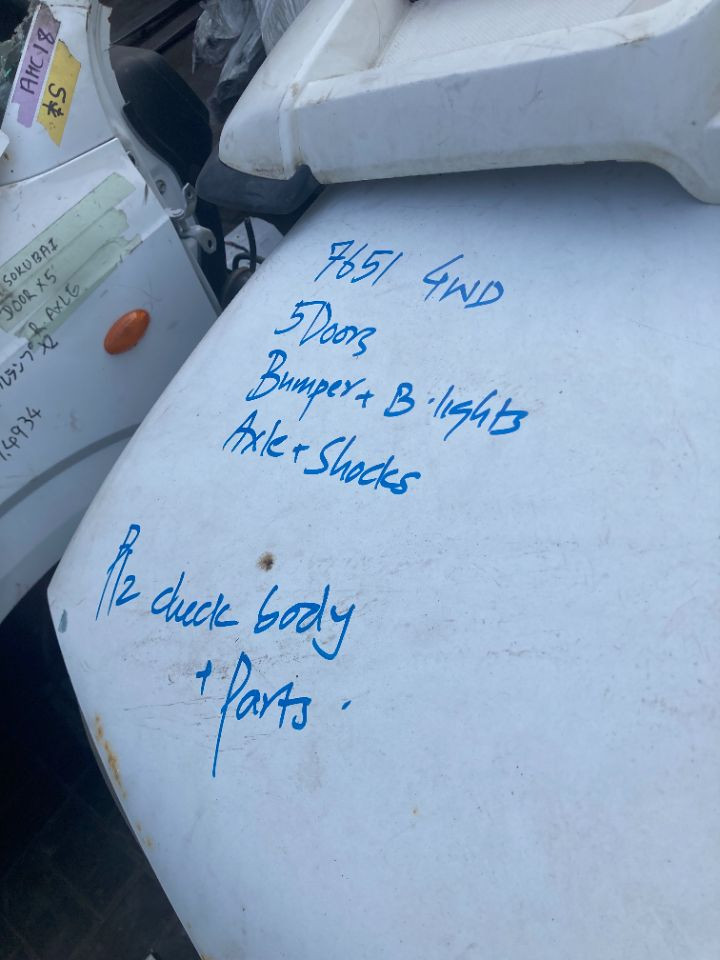 AHC 18
5*
SOKUBAI
DOOR X5
R AXLE
ランプ X2
1.4934
7651 4WD
5Doors
Bumper + B.lights
Axle + Shocks
Plz check body
+ Parts.